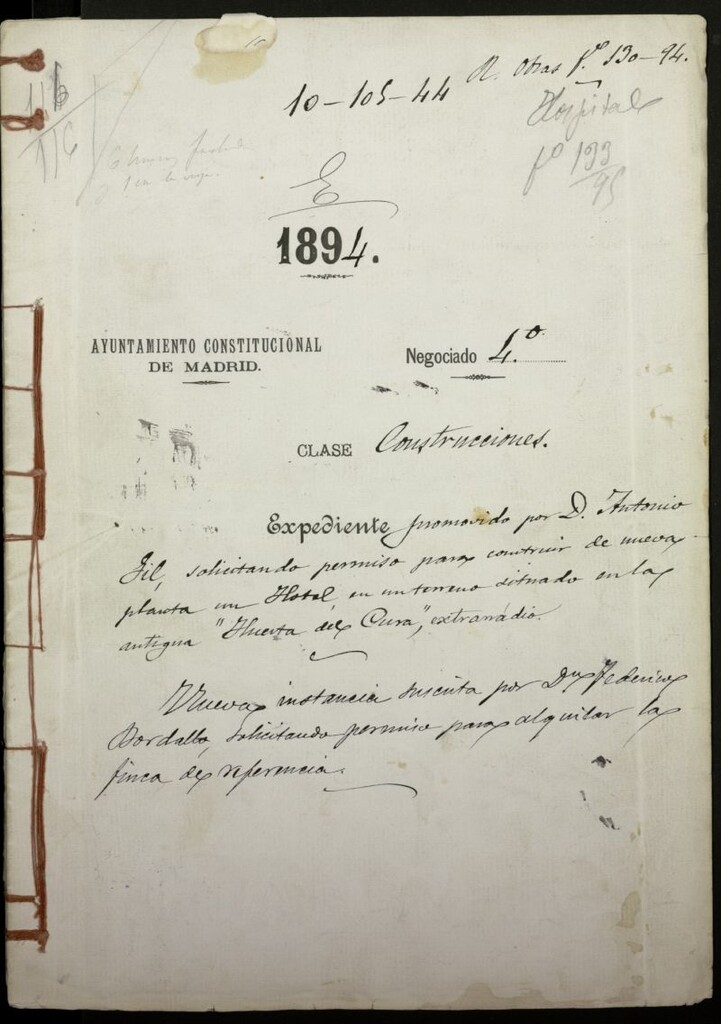 R. Obras fº 130-94.
10-105-44
Hospital
fº 133
95
1/6
E
1894.
AYUNTAMIENTO CONSTITUCIONAL
DE MADRID.
Negociado 4.º
CLASE Construcciones.
Expediente promovido por D. Antonio
Gil, solicitando permiso para construir de nueva
planta un Hotel, en un terreno situado en la
antigua "Huerta del Cura", extrarradio.
Nueva instancia suscrita por Dn Federico
Bordallo, solicitando permiso para alquilar la
finca de referencia.